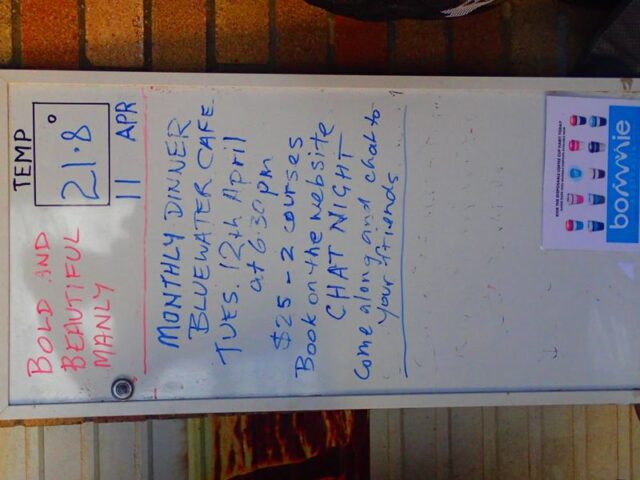 BOLD AND
BEAUTIFUL
MANLY
TEMP
21.8°
11 APR
MONTHLY DINNER
BLUEWATER CAFE
TUES. 12th April
at 6.30pm
$25 - 2 courses
Book on the website
CHAT NIGHT
Come along and chat to
your friends
bommie